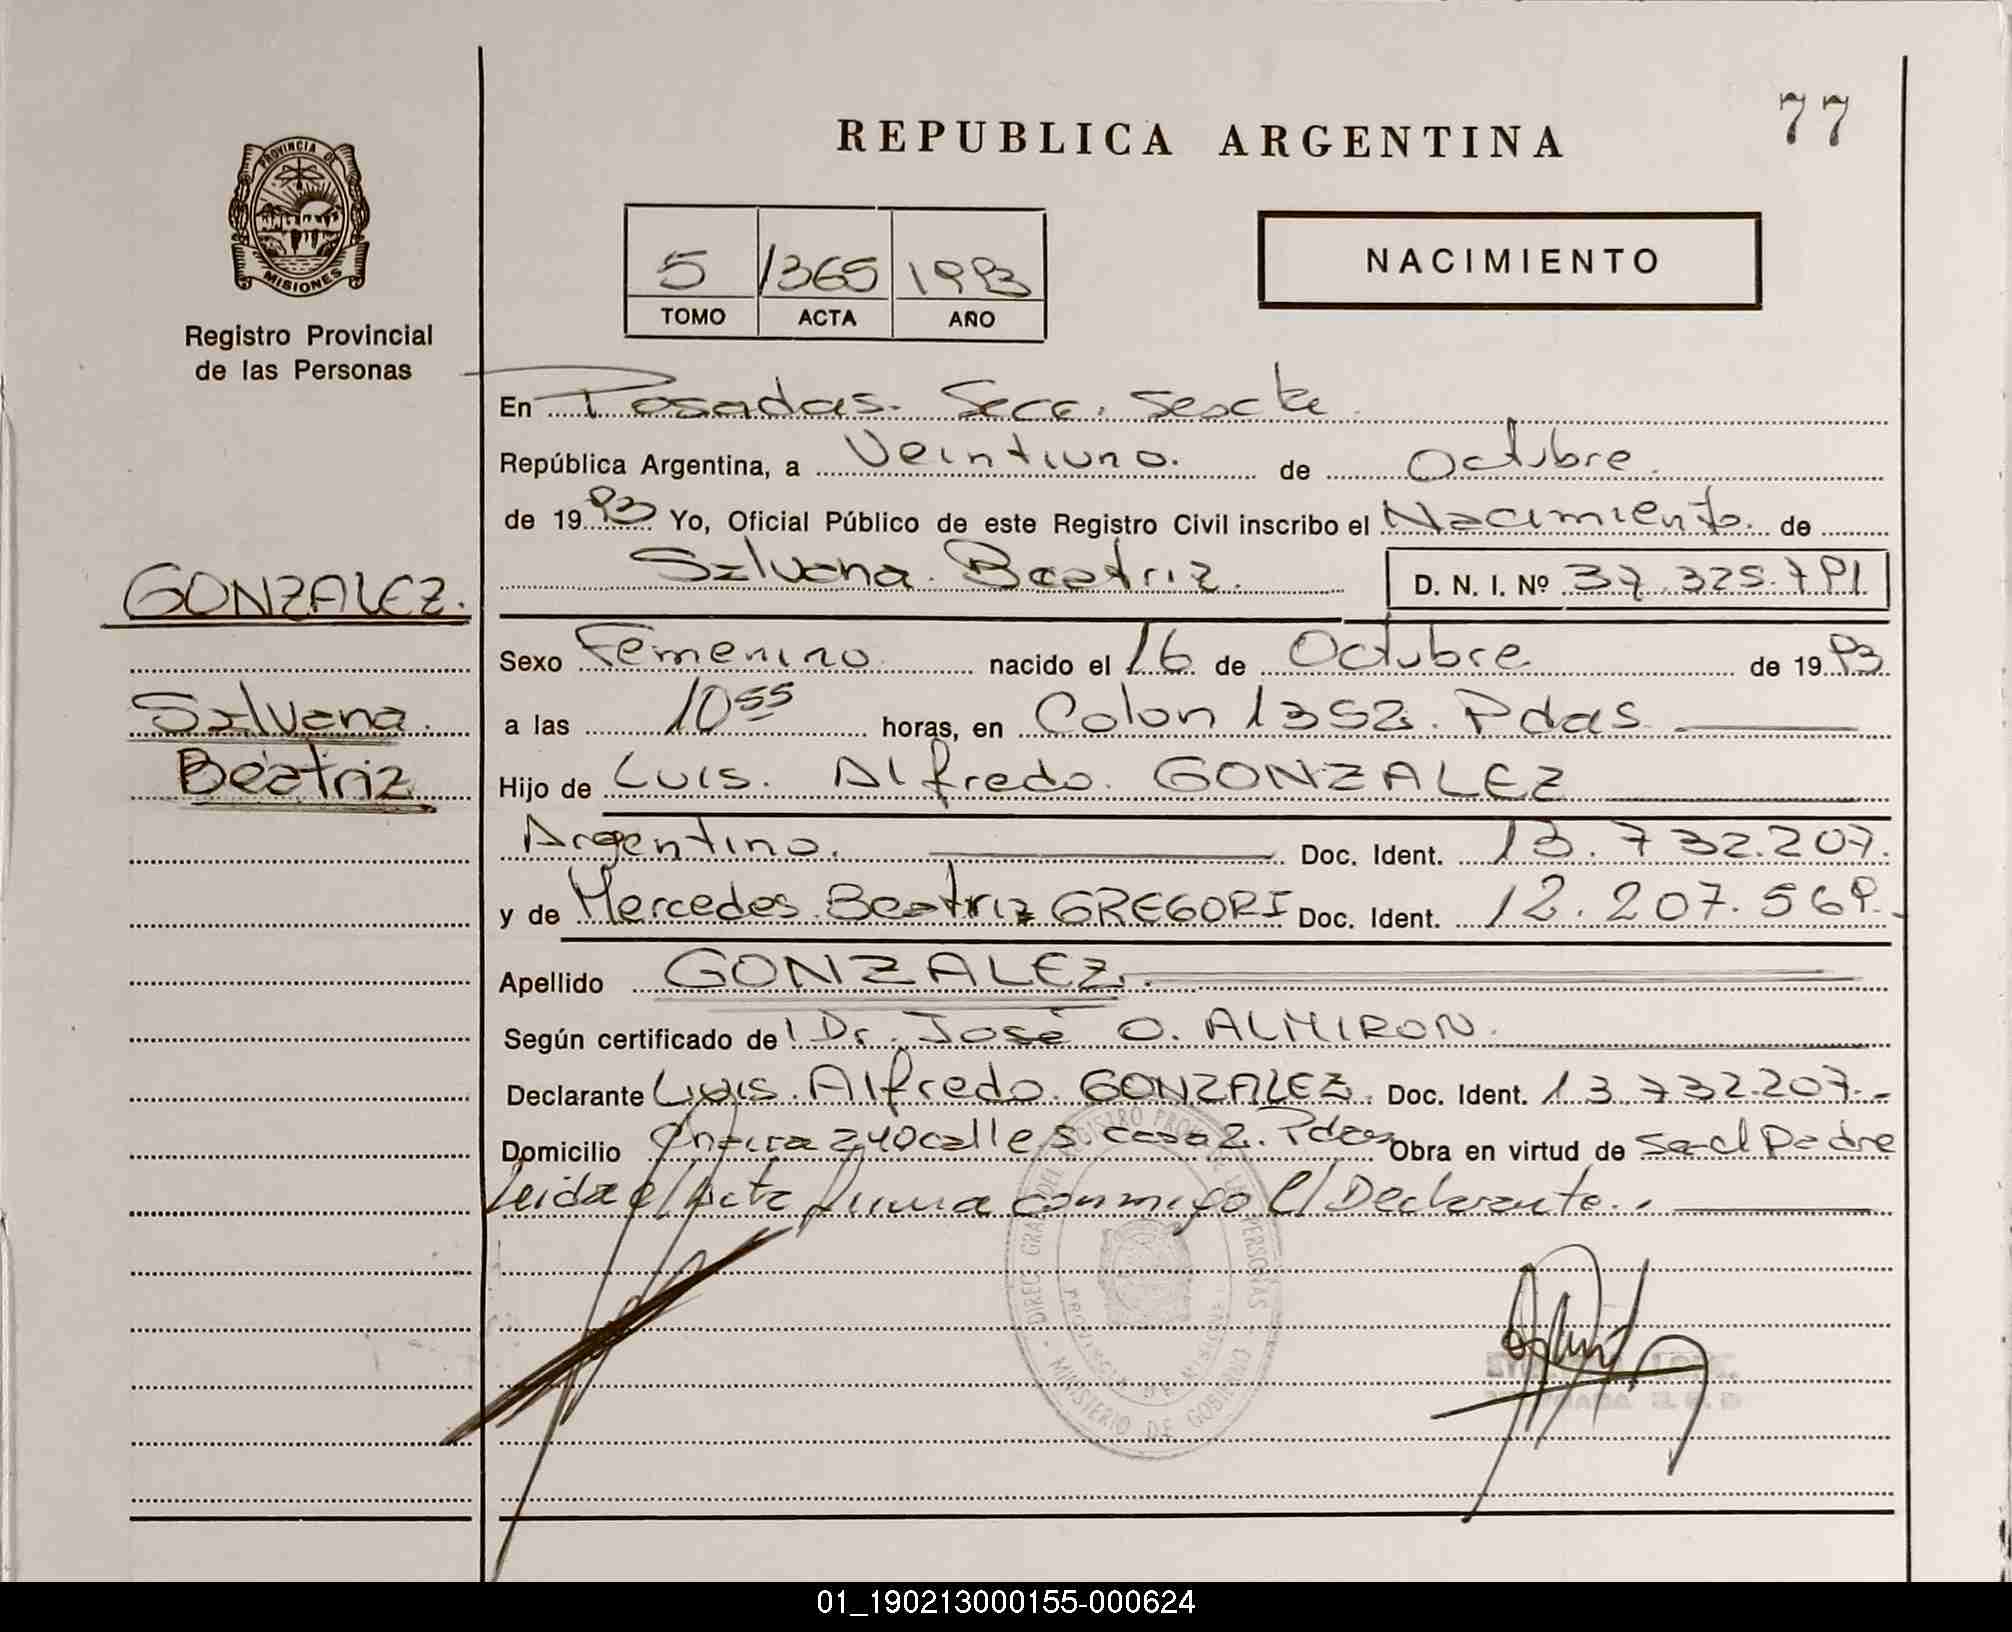 77
REPUBLICA ARGENTINA
PROVINCIA DE
MISIONES
Registro Provincial
de las Personas
5 1365 1993
TOMO ACTA AÑO
NACIMIENTO
En Posadas. Secc. sexta
República Argentina, a Veintiuno. de Octubre.
de 1993 Yo, Oficial Público de este Registro Civil inscribo el Nacimiento. de
Silvana. Beatriz. D. N. I. Nº 37.325.791
GONZALEZ.
Silvana.
Beatriz
Sexo Femenino. nacido el 16 de Octubre de 1993
a las 10 55 horas, en Colon 1352. Pdas
Hijo de Luis. Alfredo. GONZALEZ
Argentino. Doc. Ident. 13.732.207.
y de Mercedes Beatriz GREGORI Doc. Ident. 12.207.569.-
Apellido GONZALEZ.
Según certificado de Dr. José O. ALMIRON.
Declarante Luis. Alfredo. GONZALEZ. Doc. Ident. 13.732.207.-
Domicilio 240 calle 5 casa 2. Pdas Obra en virtud de se el Padre
Leida el Acta firma conmigo el Declarante.
DIREC. GRAL. DEL REGISTRO PROV. DE LAS PERSONAS
PROVINCIA DE MISIONES
MINISTERIO DE GOBIERNO
01_190213000155-000624